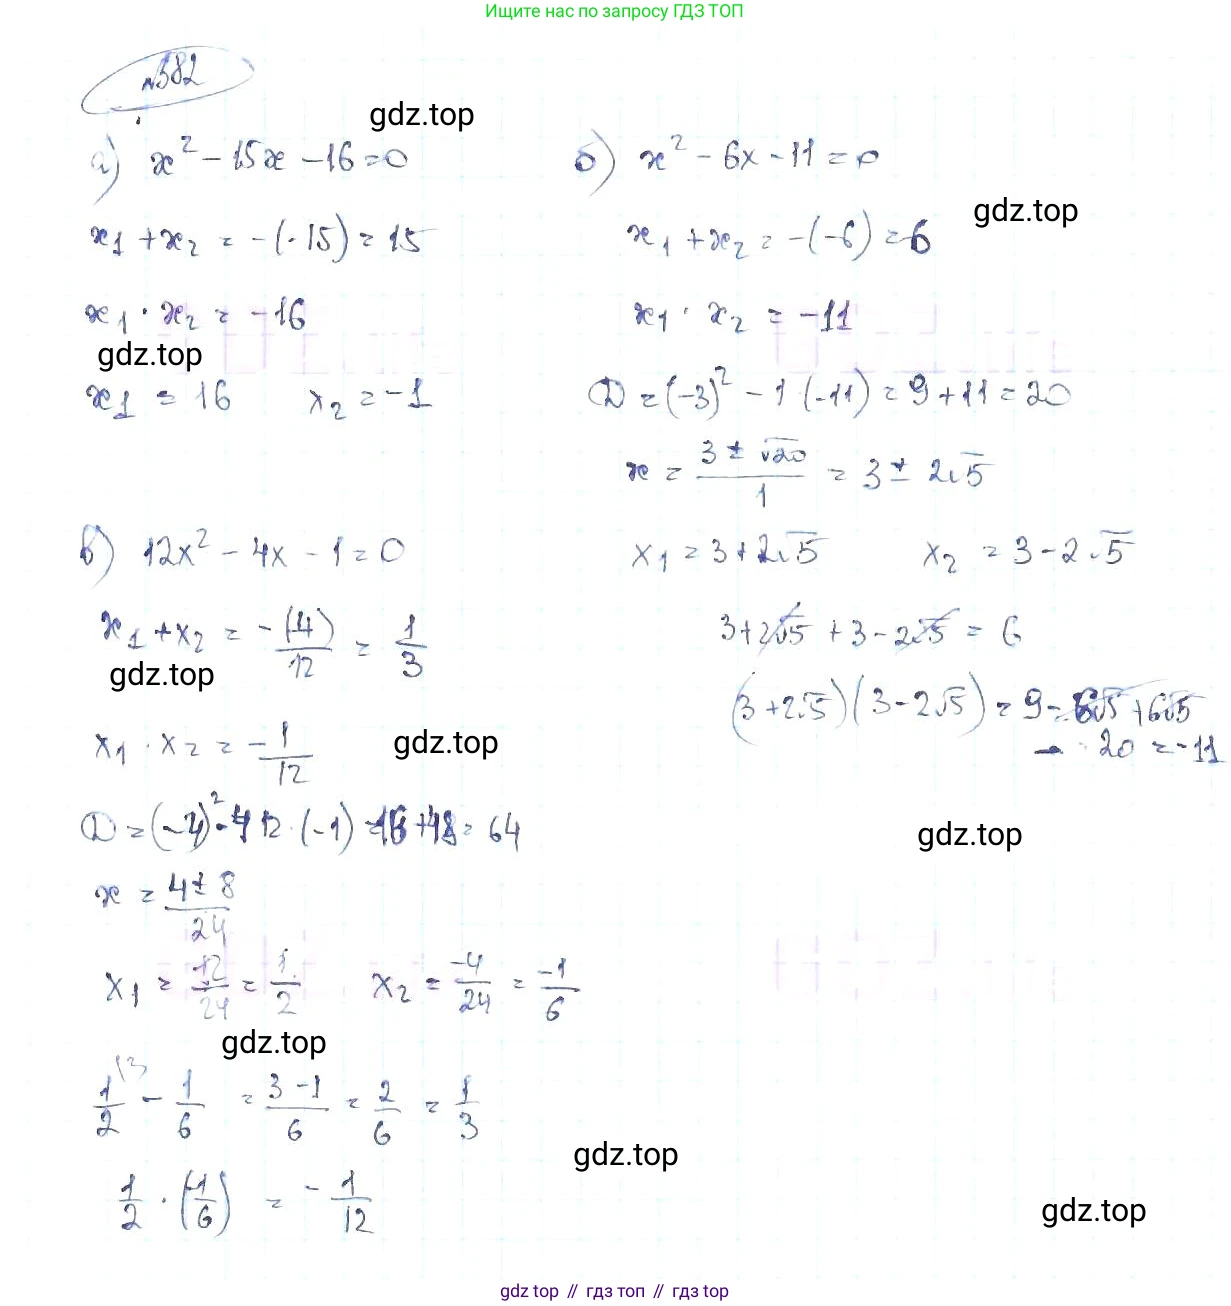 Ищите нас по запросу ГДЗ ТОП
№582
gdz.top
а) x² - 15x - 16 = 0
x₁ + x₂ = -(-15) = 15
x₁ · x₂ = -16
gdz.top
x₁ = 16 x₂ = -1
б) x² - 6x - 11 = 0
gdz.top
x₁ + x₂ = -(-6) = 6
x₁ · x₂ = -11
D = (-3)² - 1 · (-11) = 9 + 11 = 20
x = (3 ± √20)/1 = 3 ± 2√5
x₁ = 3 + 2√5 x₂ = 3 - 2√5
3 + 2√5 + 3 - 2√5 = 6
(3 + 2√5)(3 - 2√5) = 9 - 6√5 + 6√5
- 20 = -11
в) 12x² - 4x - 1 = 0
x₁ + x₂ = -(4)/12 = 1/3
gdz.top
x₁ · x₂ = -1/12
gdz.top
D = (-4)² - 4 · 12 · (-1) = 16 + 48 = 64
gdz.top
x = (4 ± 8)/24
x₁ = 12/24 = 1/2 x₂ = -4/24 = -1/6
gdz.top
1/2 (3 - 1/6 = (3 - 1)/6 = 2/6 = 1/3
gdz.top
1/2 · (-1/6) = -1/12
gdz.top
gdz top // гдз топ // gdz top